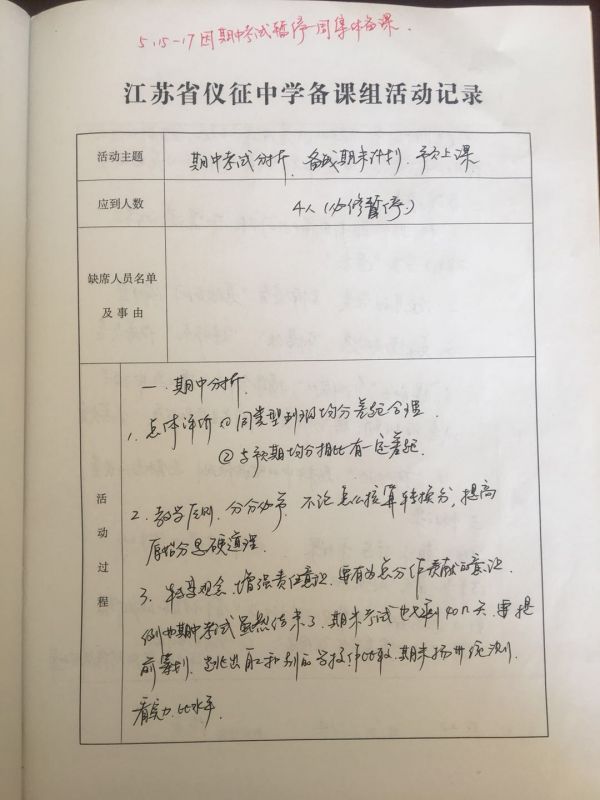 5.15-17因期中考试暂停一周集体备课.
江苏省仪征中学备课组活动记录
活动主题
期中考试分析、备战期末计划、予欠上课
应到人数
4人(必修暂停)
缺席人员名单
及事由
活动过程
一、期中分析.
1. 总体评价 ①同类型班级均分差距合理.
②与预期均分相比有一定差距.
2. 教学原则, 分分必争, 不论怎么核算转换分, 提高
原始分是硬道理.
3. 转变观念, 增强责任意识, 要有为总分作贡献的意识.
期中考试虽然结束了, 期末考试也剩40几天, 要提
前谋划, 跳出 和别的学校作比较, 期末扬州统测,
看实力, 比水平.